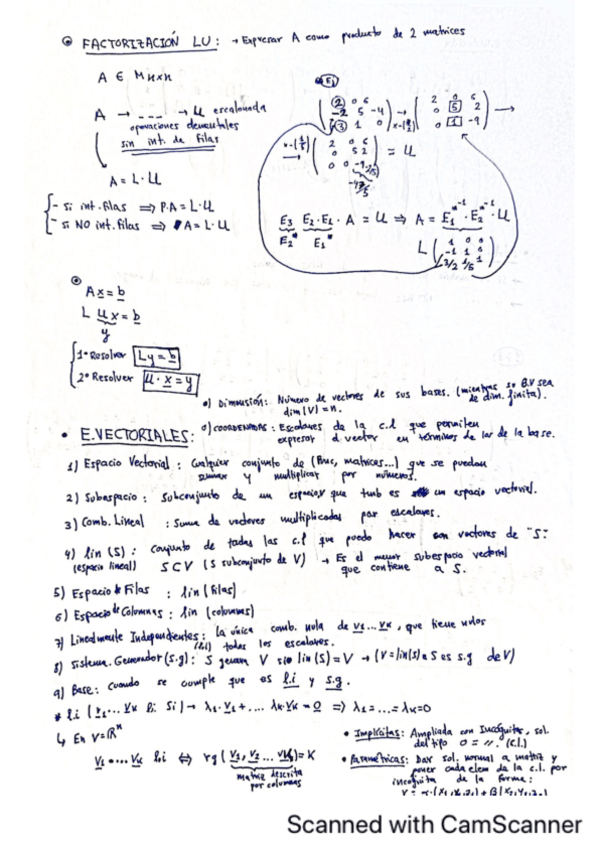 FACTORIZACIÓN LU: → Expresar A como producto de 2 matrices
A ∈ Mnxn
A → --- → U escalonada
operaciones elementales
sin int. de filas
A = L·U
- si int. filas ⇒ P·A = L·U
- si NO int. filas ⇒ A = L·U
E1
2 0 6
-2 5 -4
3 1 0
→
2 0 6
0 5 2
0 1 -9
→
2 0 6
0 5 2
0 0
= U
E3 E2·E1·A = U ⇒ A = E1⁻¹·E2⁻¹·U
E2 E1
L
1 0 0
-1 1 0
3/2 1/5 1
Ax = b
L Ux = b
y
1º Resolver Ly = b
2º Resolver U·x = y
•) Dimensión: Número de vectores de sus bases. (mientras so B.V sea de dim. finita).
dim(V) = n.
•) COORDENADAS: Escalares de la c.l que permiten
expresar el vector en términos de los de la base.
• E.VECTORIALES:
1) Espacio Vectorial: Cualquier conjunto de (func, matrices...) que se puedan
sumar y multiplicar por números.
2) Subespacio: Subconjunto de un espacio que tmb es un espacio vectorial.
3) Comb. Lineal: Suma de vectores multiplicados por escalares.
4) lin(S): conjunto de todas las c.l que puedo hacer con vectores de "S".
(espacio lineal) S⊂V (S subconjunto de V) → Es el menor subespacio vectorial
que contiene a S.
5) Espacio Filas: lin(filas)
6) Espacio de Columnas: lin(columnas)
7) Linealmente Independientes: la única comb. nula de v1...vk, que tiene nulos
(l.i) todos los escalares.
8) Sistema Generador (s.g): S genera V sio lin(S) = V → (V = lin(S) ⇔ S es s.g de V)
9) Base: Cuando se cumple que es l.i y s.g.
* l.i (v1... vk li si) → λ1·v1 + .... λk·vk = 0 ⇒ λ1 = ... = λk = 0
↳ En V = ℝⁿ
v1 .... vk li ⇔ rg(v1, v2 ... vk) = K
matriz descrita
por columnas
• Implícitas: Ampliada con Incógnitas, sol.
del tipo 0 = //. (c.l.)
• Paramétricas: Dar sol. normal a matriz y
poner cada elem de la c.l. por
incógnita de la forma:
Scanned with CamScanner